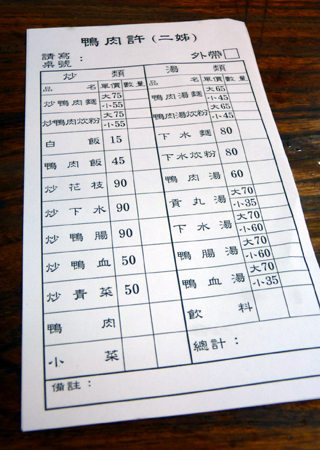 鴨肉許(二姊)
請寫
桌號：
外帶□
炒類
品名 單價 數量
炒鴨肉麵 大75 小55
炒鴨肉炊粉 大75 小55
白飯 15
鴨肉飯 45
炒花枝 90
炒下水 90
炒鴨腸 90
炒鴨血 50
炒青菜 50
鴨肉
小菜
湯類
品名 單價 數量
鴨肉湯麵 大65 小45
鴨肉湯炊粉 大65 小45
下水麵 80
下水炊粉 80
鴨肉湯 60
貢丸湯 大70 小35
下水湯 大70 小60
鴨腸湯 大70 小60
鴨血湯 大70 小35
飲料
總計：
備註：